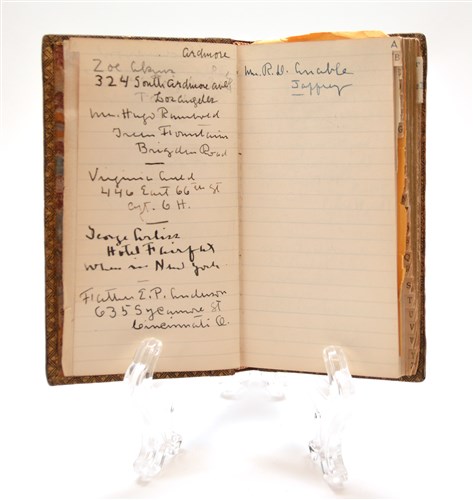 Ardmore
Zoe Akins
324 South Ardmore ave
Los angeles
Mr. Hugo
Green Fountain
Brigden Road
Virginia
446 East 66th St
apt. 6 H.
George Arliss
Hotel Fairfax
When in New York
Father E.P. Anderson
635 Sycamore St
Cincinnati O.
Mr. R.D. Anable
Jaffrey
A